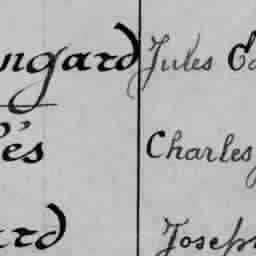 ngard Jules E
és Charles
rd Joseph